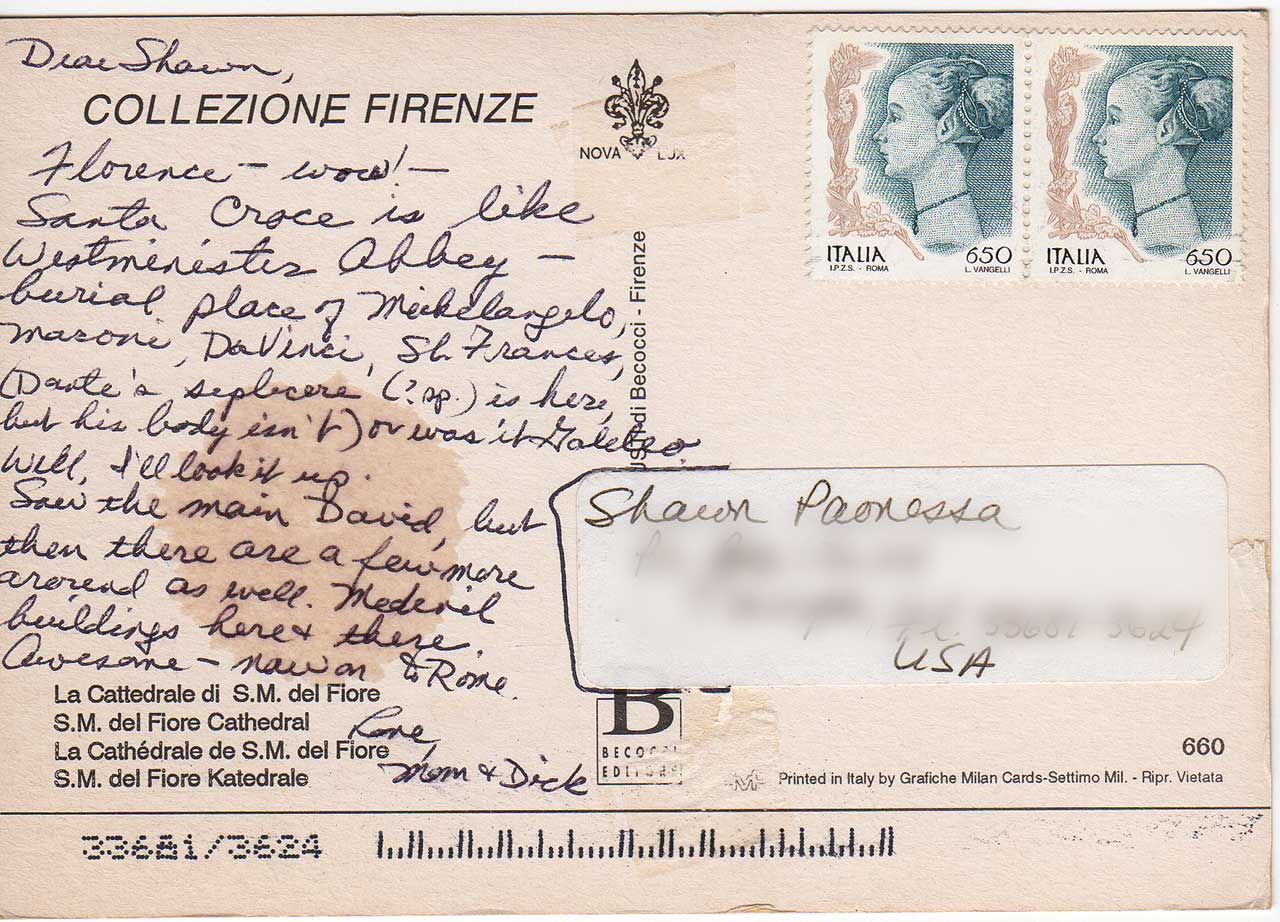 Dear Shawn,
COLLEZIONE FIRENZE
Florence - wow! -
Santa Croce is like
Westminister Abbey -
burial place of Michelangelo,
Maconi, DaVinci, St. Frances,
(Dante's seplecere (? sp.) is here,
but his body isn't) or was it Galileo
Well, I'll look it up.
Saw the main David, but
then there are a few more
around as well. Medevil
buildings here & there.
Awesome - now on to Rome.
Love,
Mom & Dick
La Cattedrale di S.M. del Fiore
S.M. del Fiore Cathedral
La Cathédrale de S.M. del Fiore
S.M. del Fiore Katedrale
NOVA LUX
di Becocci - Firenze
ITALIA 650
I.P.Z.S. - ROMA L. VANGELLI
ITALIA 650
I.P.Z.S. - ROMA L. VANGELLI
Shawn Paonessa
33681 3624
USA
B
BECOCCI
EDITORE
660
Printed in Italy by Grafiche Milan Cards-Settimo Mil. - Ripr. Vietata
33681/3624